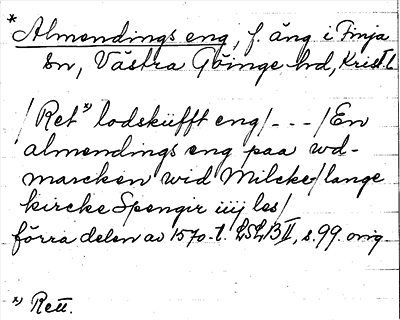 * Almendings eng, f. äng i Finja
sn, Västra Göinge hd, Krist. l.
/Ret *) lodskifft eng/ - - - /En
almendings eng paa wd-
marcken wid Milcke/lange
kircke Spengir iiij les/
förra delen av 1570-t. LSLB II, s. 99. orig.
*) Rett.